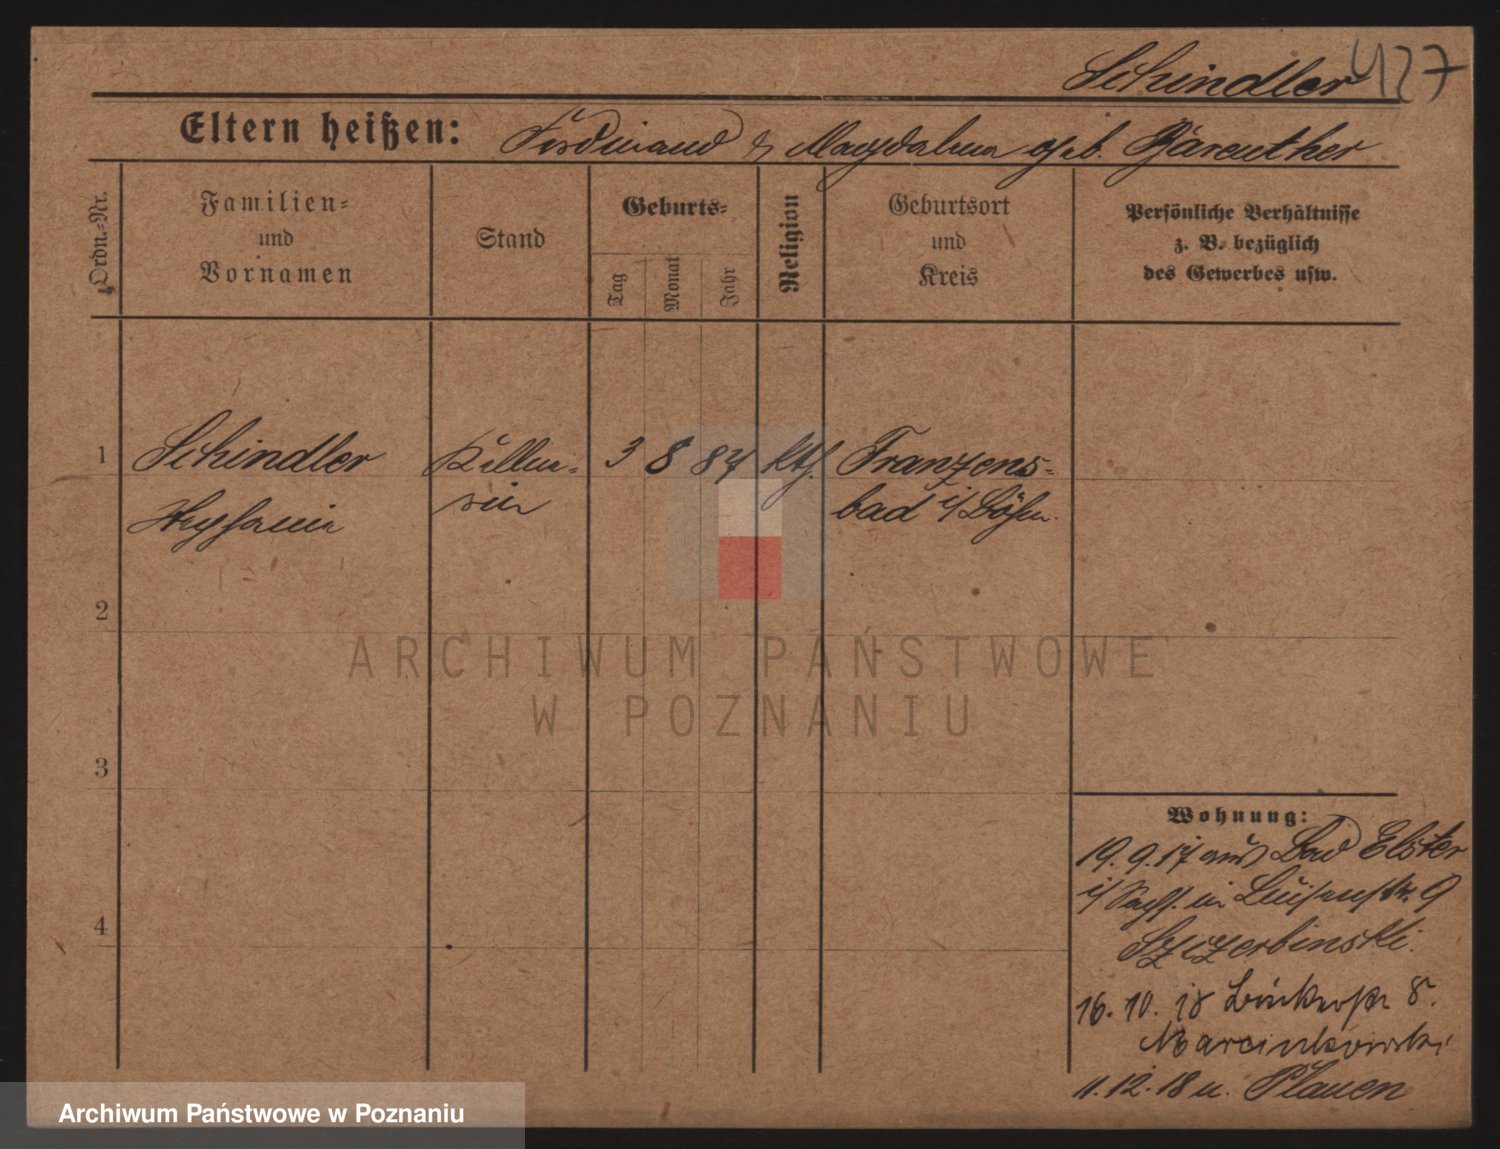 Schindler 427
Eltern heißen: Ferdinand & Magdalena geb. Bäreuther
Ordn.-Nr.
Familien-
und
Vornamen
Stand
Geburts-
Tag
Monat
Jahr
Religion
Geburtsort
und
Kreis
Persönliche Verhältnisse
z. B. bezüglich
des Gewerbes usw.
1 Schindler Kellne- 3 8 87 kth. Franzens-
Stephanie rin bad i/Böhm.
2
3
4
Wohnung:
19.9.17 aus Bad Elster
i/Sachs. in Luisenstr. 9
Szczerbinski.
16.10.18 8.
Marcinkowski
11.12.18 n. Plauen
ARCHIWUM PAŃSTWOWE
W POZNANIU
Archiwum Państwowe w Poznaniu